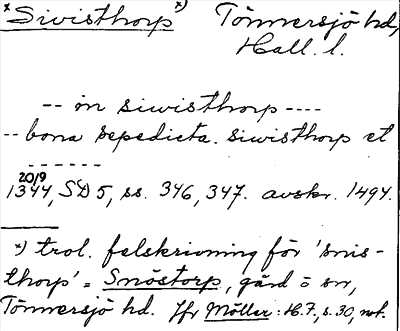 *Siwisthorp *) Tönnersjö hd,
Hall. l.
-- in siwisthorp ----
-- bona sepedicta. siwisthorp et
- - - - - - -
20/9
1344, SD 5, ss. 346, 347. avskr. 1494.
*) trol. felskrivning för 'snis-
thorp' = Snöstorp, gård o sn,
Tönnersjö hd. Jfr Möller: 16.7, s. 30, not.